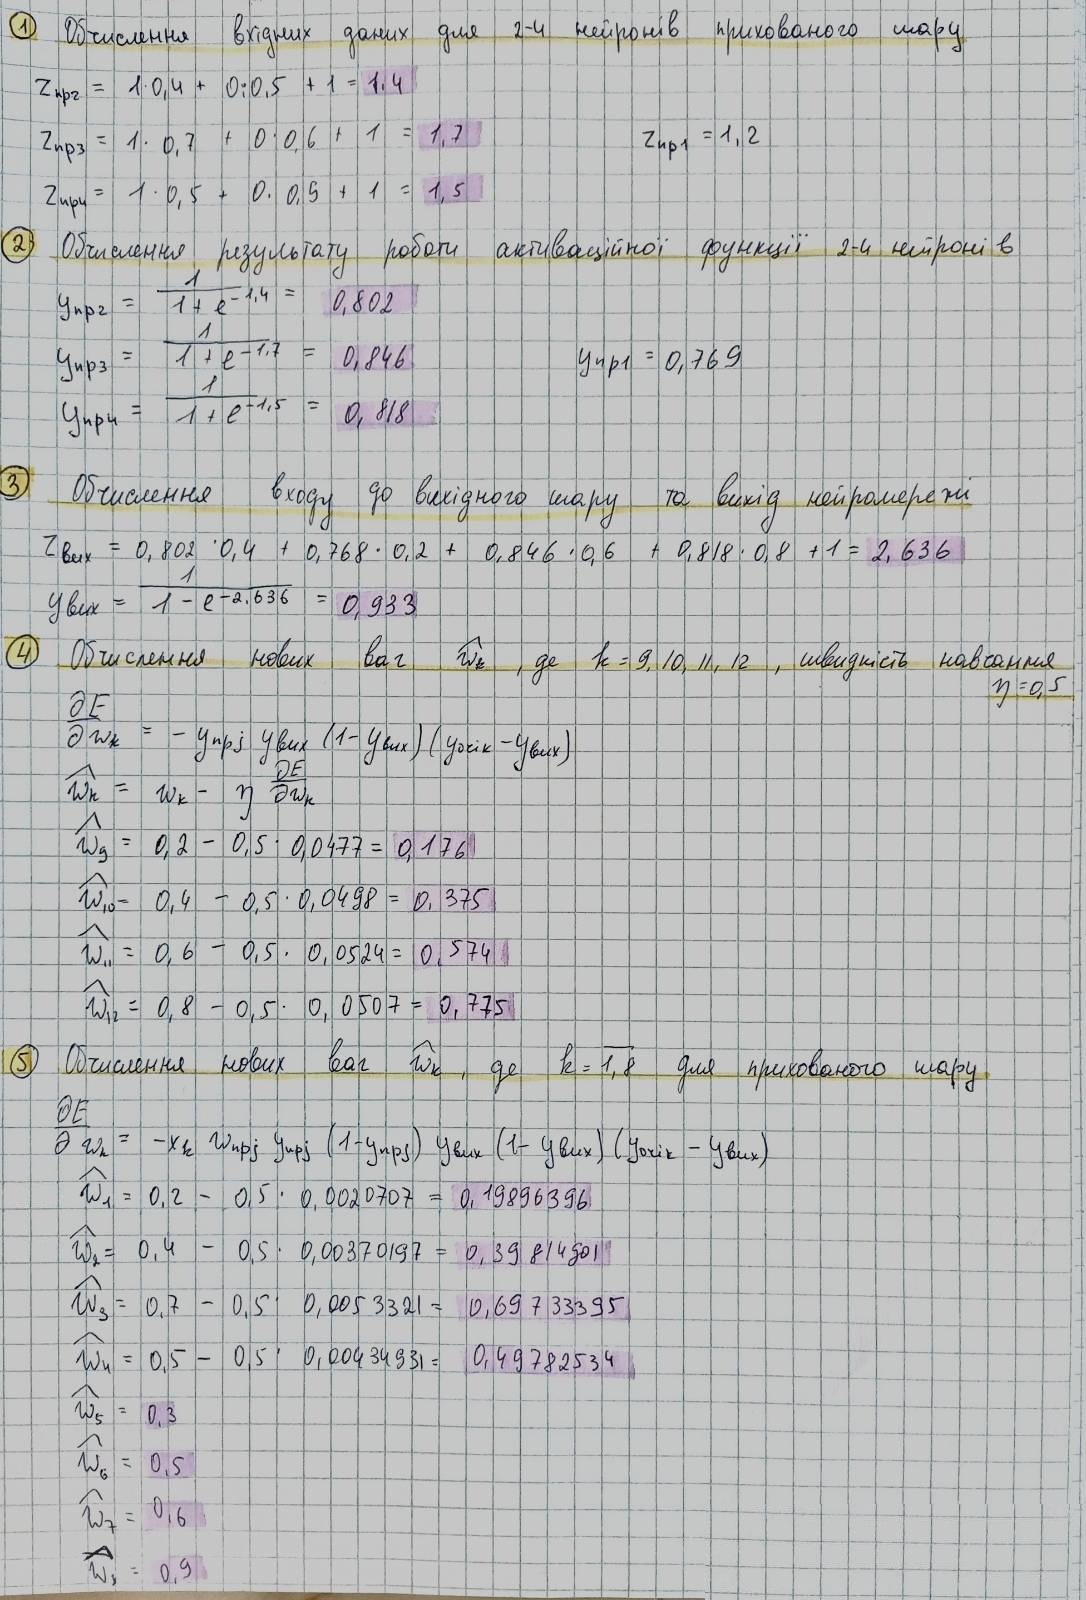 1 Обчислення вхідних даних для 2-4 нейронів прихованого шару
zпр2 = 1·0,4 + 0·0,5 + 1 = 1.4
zпр3 = 1·0,7 + 0·0,6 + 1 = 1,7 zпр1 = 1,2
zпр4 = 1·0,5 + 0·0,9 + 1 = 1,5
2 Обчислення результату роботи активаційної функції 2-4 нейронів
yпр2 = 1/(1+e^-1,4) = 0,802
yпр3 = 1/(1+e^-1,7) = 0,846 yпр1 = 0,769
yпр4 = 1/(1+e^-1,5) = 0,818
3 Обчислення входу до вихідного шару та вихід нейромережі
zвих = 0,802·0,4 + 0,768·0,2 + 0,846·0,6 + 0,818·0,8 + 1 = 2,636
yвих = 1/(1-e^-2.636) = 0,933
4 Обчислення нових ваг ŵk, де k = 9, 10, 11, 12, швидкість навчання
η = 0,5
∂E/∂wk = - yпрj yвих (1-yвих)(yочік - yвих)
ŵk = wk - η ∂E/∂wk
ŵ9 = 0,2 - 0,5·0,0477 = 0,176
ŵ10 = 0,4 - 0,5·0,0498 = 0,375
ŵ11 = 0,6 - 0,5·0,0524 = 0,574
ŵ12 = 0,8 - 0,5·0,0507 = 0,775
5 Обчислення нових ваг ŵk, де k = 1,8 для прихованого шару
∂E/∂wk = -xk wпрj yпрj (1-yпрj) yвих (1-yвих)(yочік - yвих)
ŵ1 = 0,2 - 0,5·0,0020707 = 0,19896396
ŵ2 = 0,4 - 0,5·0,00370197 = 0,39814901
ŵ3 = 0,7 - 0,5·0,0053321 = 0,69733395
ŵ4 = 0,5 - 0,5·0,00434931 = 0,49782534
ŵ5 = 0,3
ŵ6 = 0,5
ŵ7 = 0,6
ŵ8 = 0,9